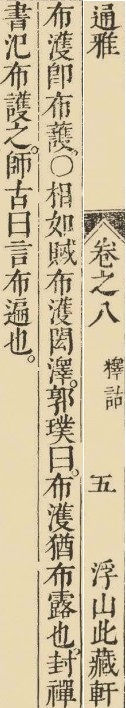 通雅 卷之八 釋詁 五 浮山此藏軒
布濩卽布護○相如賦布濩閎澤郭璞曰布濩猶布露也封禪
書氾布護之師古曰言布遍也